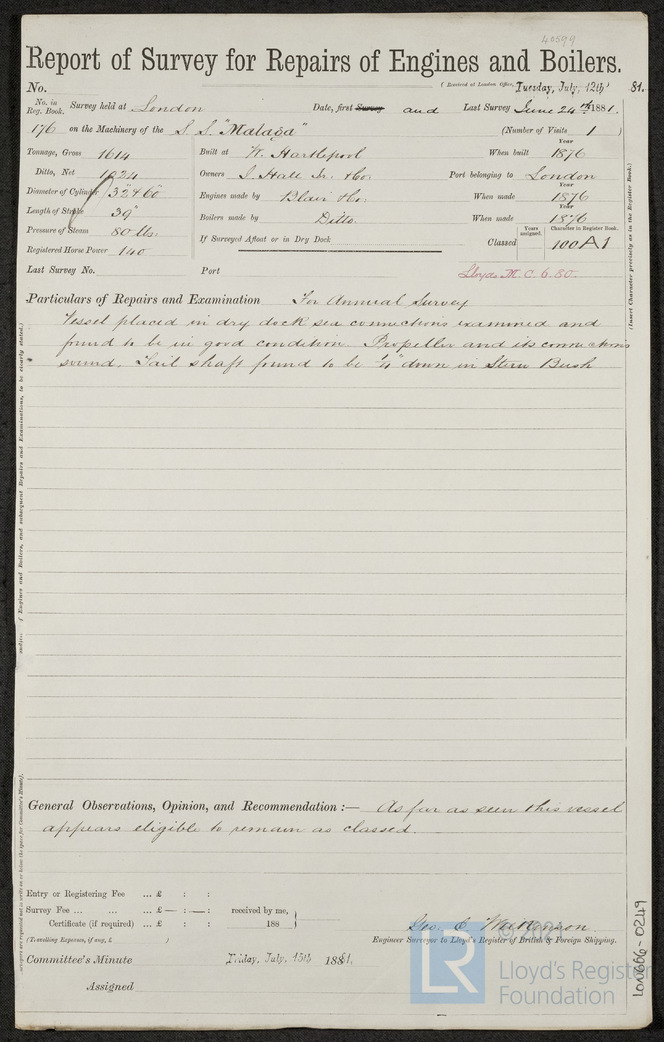 40599
Report of Survey for Repairs of Engines and Boilers.
No. (Received at London Office, Tuesday, July, 12th 81.
No. in Reg. Book. Survey held at London Date, first Survey and Last Survey June 24th 1881.
176 on the Machinery of the S.S. "Malaga" (Number of Visits 1 )
Tonnage, Gross 1614 Built at W. Hartlepool When built Year 1876
Ditto, Net 1024 Owners J. Hall Jr. & Co. Port belonging to London
Diameter of Cylinder 32" & 60" Engines made by Blair & Co. When made Year 1876
Length of Stroke 39" Boilers made by Ditto When made Year 1876
Pressure of Steam 80 lbs. If Surveyed Afloat or in Dry Dock Classed Years assigned. Character in Register Book. 100A1
Registered Horse Power 140
Last Survey No. Port Lloyds M.C. 6.80.
Particulars of Repairs and Examination For Annual Survey
Vessel placed in dry dock sea connections examined and
found to be in good condition. Propeller and its connections
sound. Tail shaft found to be 1/4" down in Stern Bush
(Insert Character precisely as in the Register Book.)
of Engines and Boilers, and subsequent Repairs and Examinations, to be clearly stated.)
General Observations, Opinion, and Recommendation :— As far as seen this vessel
appears eligible to remain as classed.
Entry or Registering Fee ... £ : :
Survey Fee ... ... ... £ — : — : received by me,
Certificate (if required) ... £ : : 188
(Travelling Expenses, if any, £ )
Geo. C.
Engineer Surveyor to Lloyd's Register of British & Foreign Shipping.
Committee's Minute Friday, July, 15th 1881.
Assigned
LR
© 2021
Lloyd's Register
Foundation
LON666-0249